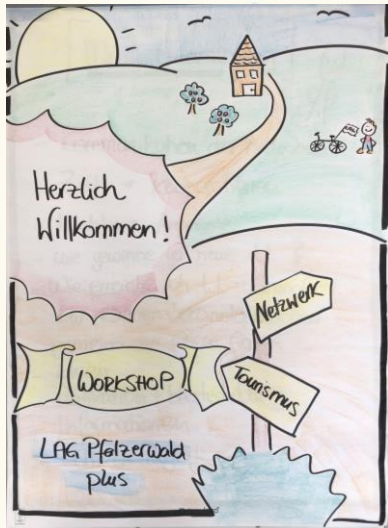 Herzlich
Willkommen!
Netzwerk
WORKSHOP
Tourismus
LAG Pfälzerwald
plus